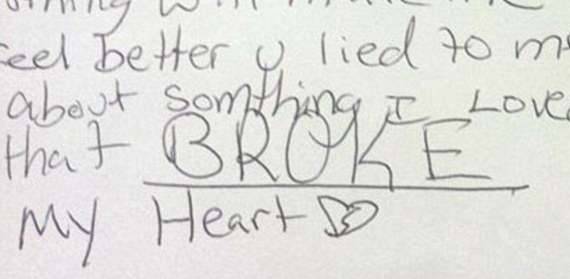 eel better y lied to m
about somthing I Love
that BROKE
My Heart